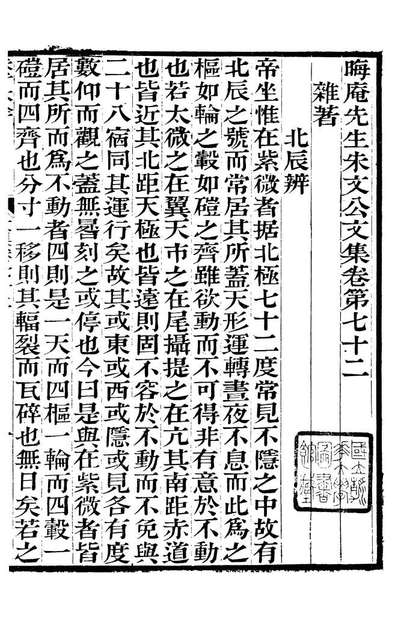 晦庵先生朱文公文集卷第七十二
雜著
北辰辨
帝坐惟在紫微者据北極七十二度常見不隱之中故有
北辰之號而常居其所蓋天形運轉晝夜不息而此為之
樞如輪之轂如磑之齊雖欲動而不可得非有意於不動
也若太微之在翼天市之在尾攝提之在亢其南距赤道
也皆近其北距天極也皆遠則固不容於不動而不免與
二十八宿同其運行矣故其或東或西或隱或見各有度
數仰而觀之蓋無晷刻之或停也今曰是與在紫微者皆
居其所而為不動者四則是一天而四樞一輪而四轂一
磑而四齊也分寸一移則其輻裂而瓦碎也無日矣若之